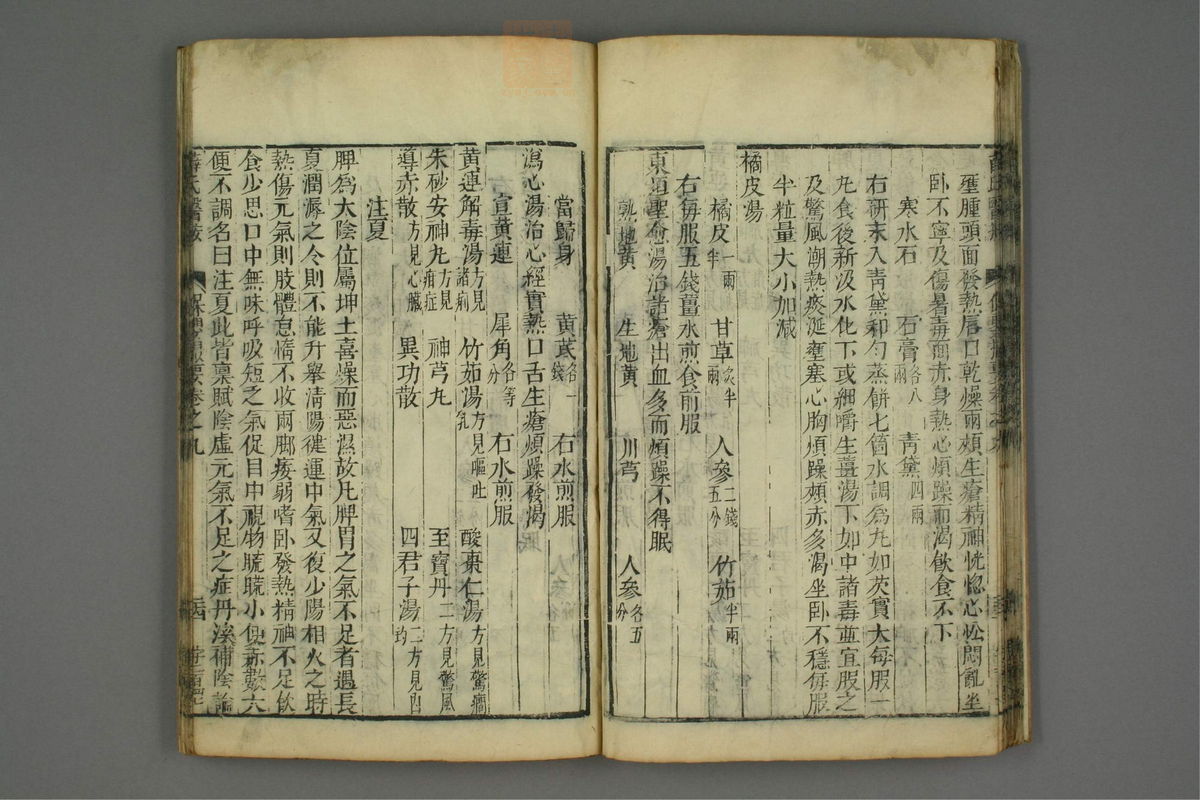 壅腫頭面發熱唇口乾燥兩頰生瘡精神恍惚心忪悶亂坐
臥不寧及傷暑毒面赤身熱心煩躁而渴飲食不下
寒水石 石膏各八兩 青黛四兩
右研末入青黛和勻蒸餅七箇水調爲丸如芡實大每服一
丸食後新汲水化下或細嚼生薑湯下如中諸毒並宜服之
及驚風潮熱痰涎壅塞心胸煩躁頰赤多渴坐臥不穩每服
半粒量大小加減
橘皮湯
橘皮一兩半 甘草炙半兩 人參二錢五分 竹茹半兩
右每服五錢薑水煎食前服
東垣聖愈湯治諸瘡出血多而煩躁不得眠
熟地黃 生地黃 川芎 人參各五分
當歸身 黃芪各一錢 右水煎服
瀉心湯治心經實熱口舌生瘡煩躁發渴
宣黃連 犀角各等分 右水煎服
黃連解毒湯方見諸痢 竹茹湯方見嘔吐乳 酸棗仁湯方見驚癎
朱砂安神丸方見疳症 神芎丸 至寶丹二方見驚風
導赤散方見心臟 異功散 四君子湯二方見四
注夏
脾爲太陰位屬坤土喜燥而惡濕故凡脾胃之氣不足者遇長
夏潤溽之令則不能升舉清陽健運中氣又復少陽相火之時
熱傷元氣則肢體怠惰不收兩脚痿弱嗜臥發熱精神不足飲
食少思口中無味呼吸短乏氣促目中視物䀮䀮小便赤數大
便不調名曰注夏此皆稟賦陰虛元氣不足之症丹溪補陰論
薛氏醫案 保嬰撮要卷之九